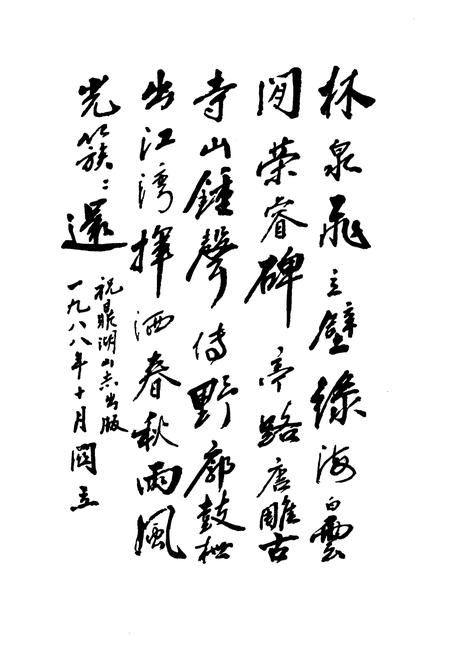 林泉飛立壁綠海白雲
間榮睿碑亭路唐雕古
寺山鐘聲传野廓鼓枻
出江湾揮洒春秋雨風
光簇々還
祝鼎湖山志出版
一九八八年十月